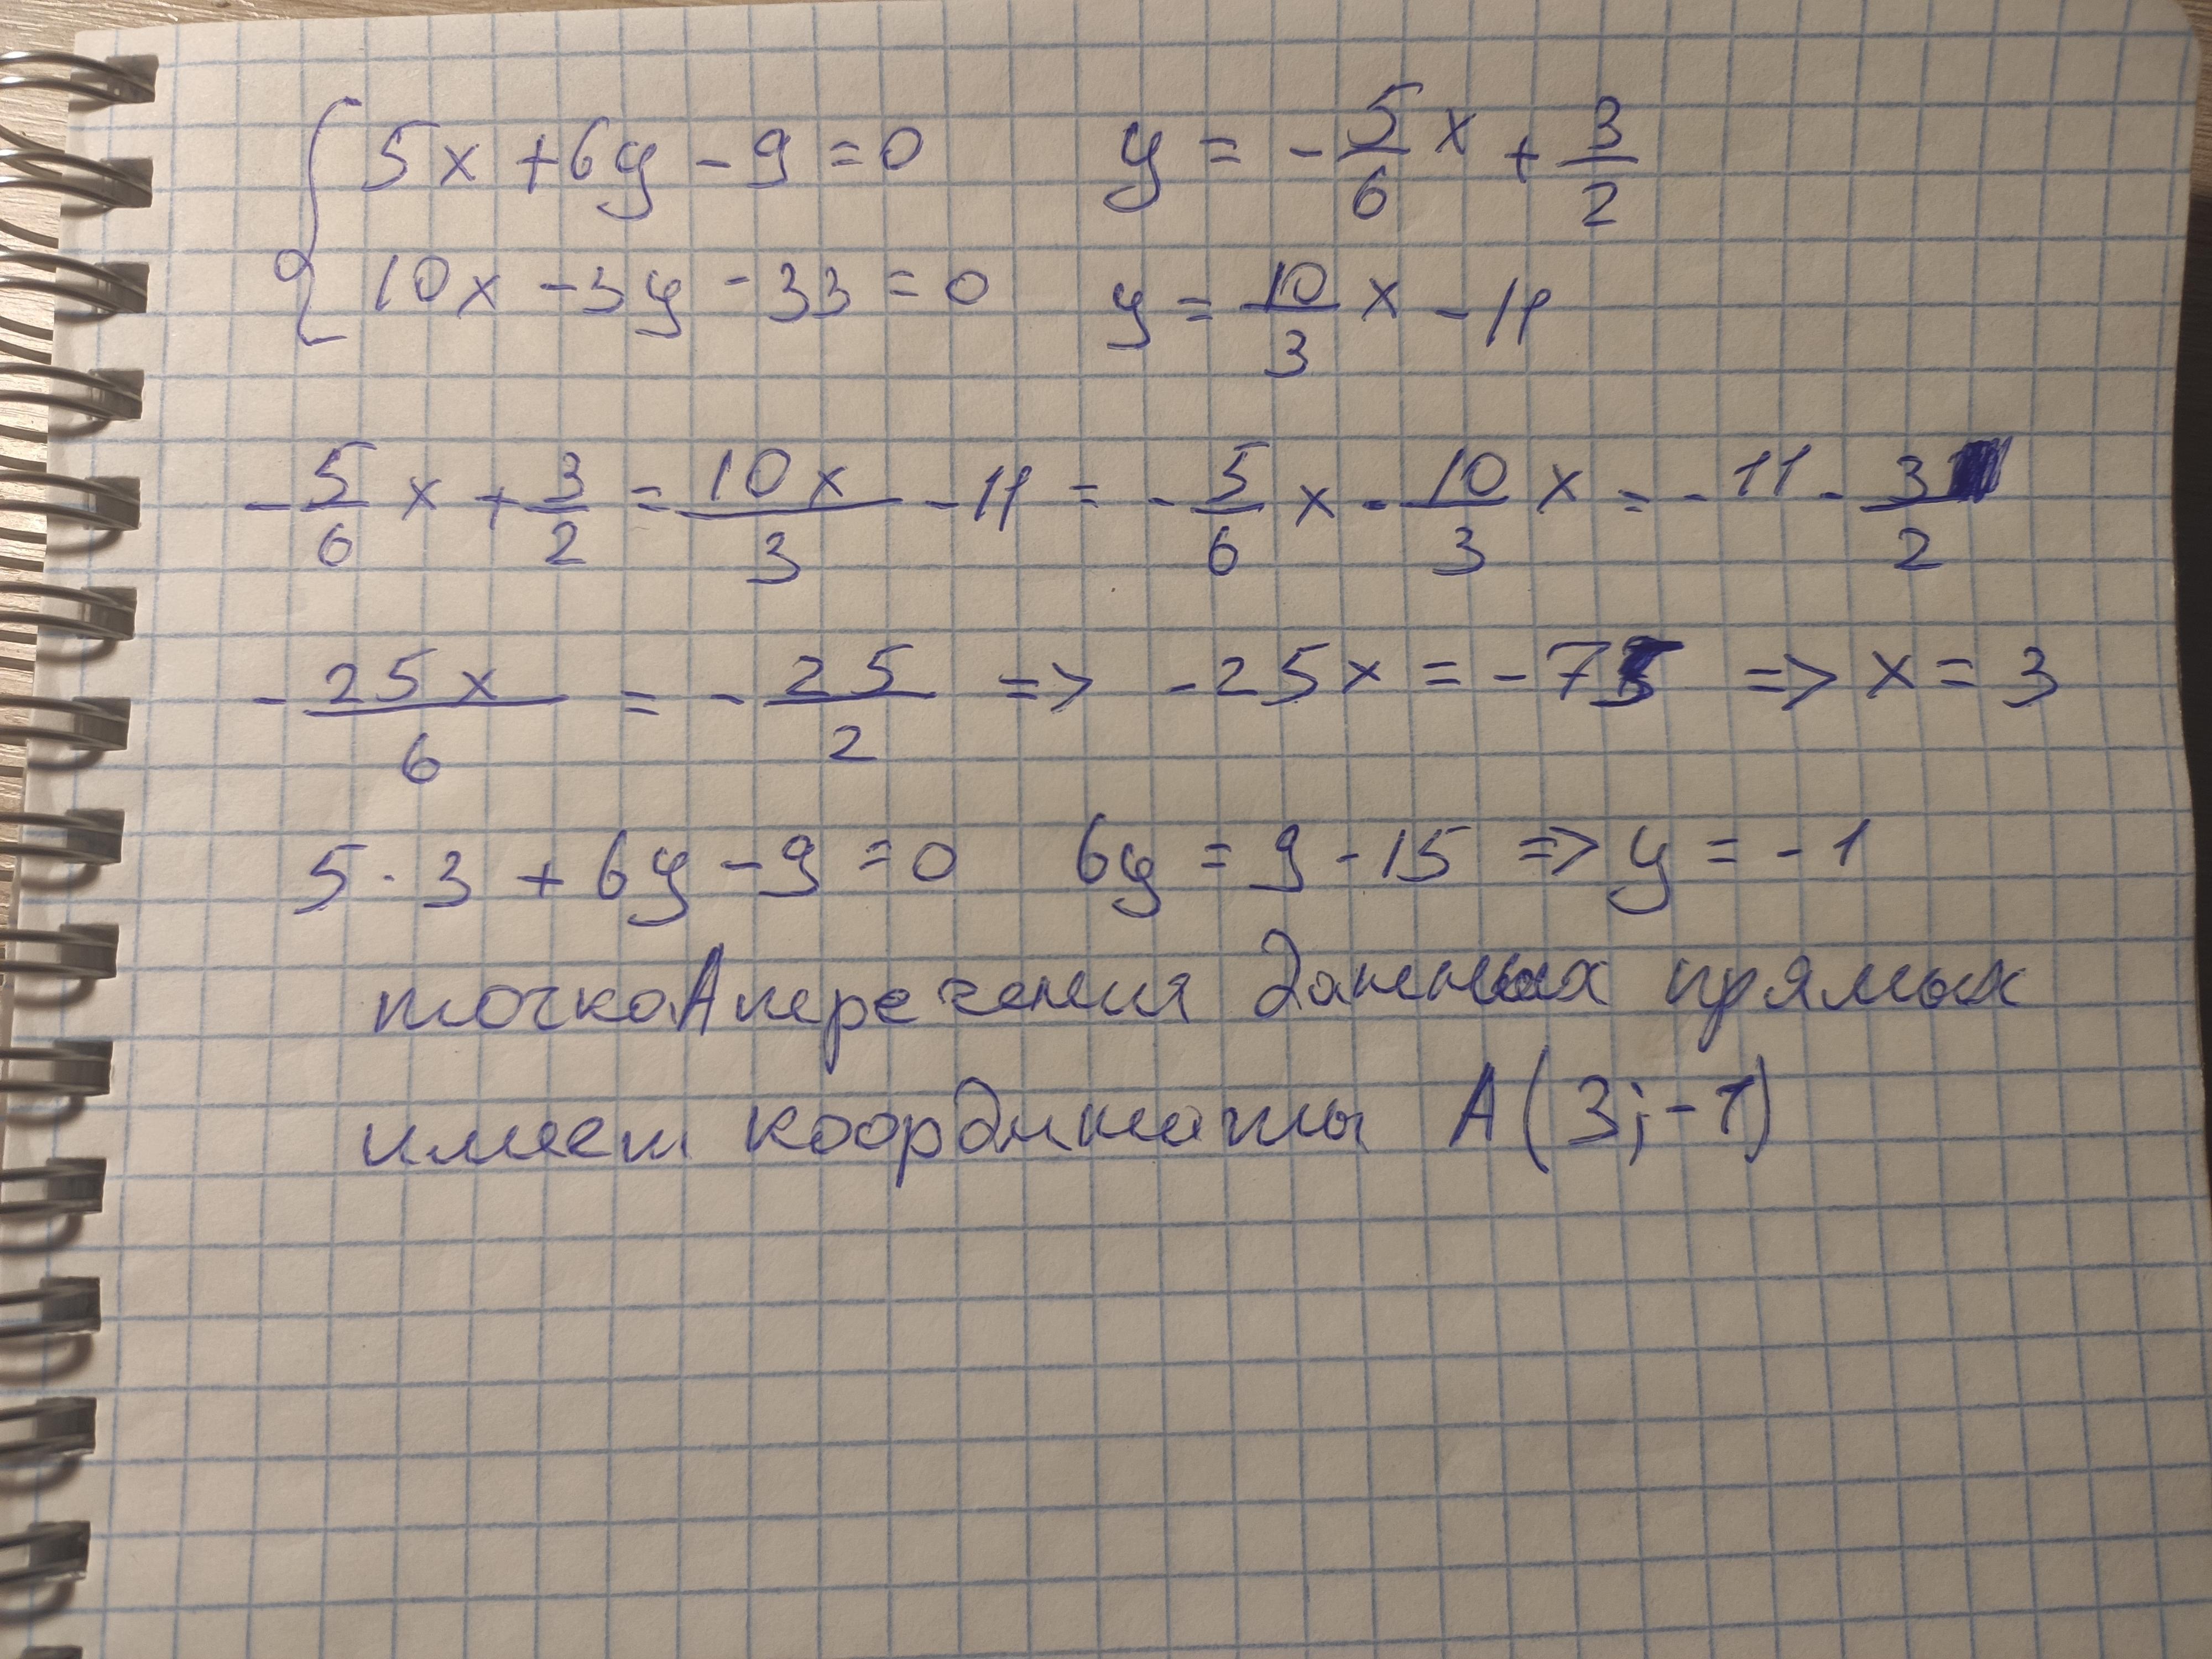 5x + 6y - 9 = 0 y = - 5/6 x + 3/2
10x - 3y - 33 = 0 y = 10/3 x - 11
- 5/6 x + 3/2 = 10x/3 - 11 = - 5/6 x - 10/3 x = - 11 - 3/2
- 25x/6 = - 25/2 => - 25x = - 75 => x = 3
5 · 3 + 6y - 9 = 0 6y = 9 - 15 => y = - 1
точка А перечения данных прямых
имеет координаты А(3; -1)